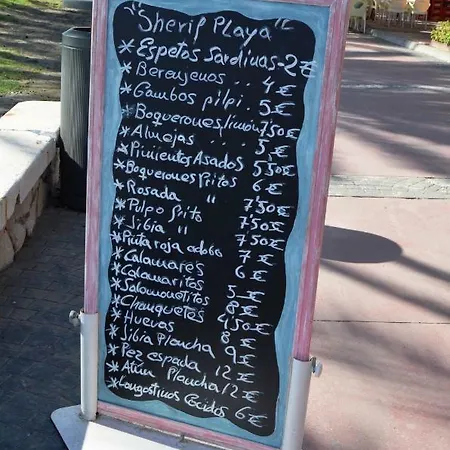 "Sherif Playa"
*Espetos Sardinas-2€
*Berenjenos .. 4€
*Gambos pilpi. 5€
*Boquerones,limón 7'50€
*Almejas .... 5€
*Pimientos Asados 5'50€
*Boquerones Fritos 6€
*Rosada " 7'50€
*Pulpo frito 7'50€
*Jibia " 7'50€
*Pintaroja adobo 7€
*Calamares 6€
*Calamaritos 5€
*Salomonetitos 8€
*Chanquetes 4'50€
*Huevas 8€
*Jibia Plancha 9€
*Pez espada 12€
*Atún Plancha 12€
*Langostinos Cocidos 6€